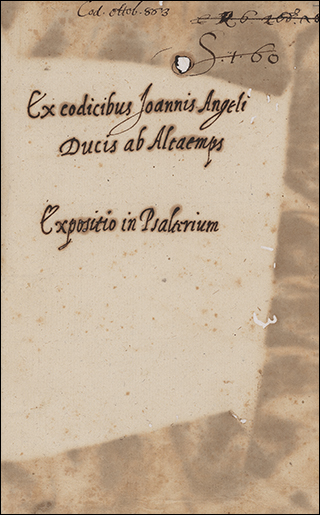 Cod. ottob. 803
S. 1. 60
Ex codicibus Joannis Angeli
Ducis ab Altaemps
Expositio in Psalterium